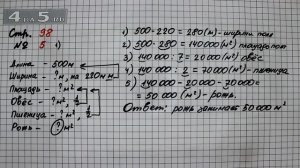 4 на 5.ru
Стр. 98
№ 5
Длина – 500м
Ширина – ? м, на 220м
Площадь – ? м²
Овёс – ? м²
Пшеница – ? м²
Рожь – ? м²
1) 500-220 = 280(м) - ширина поля
2) 500·280 = 140000(м²) площадь поля
3) 140000 : 7 = 20000(м²) овёс
4) 140000 : 2 = 70000(м²) - пшеница
5) 140000 - 20000 - 70000 =
= 50000 (м²) - рожь.
Ответ: рожь занимает 50000 м²